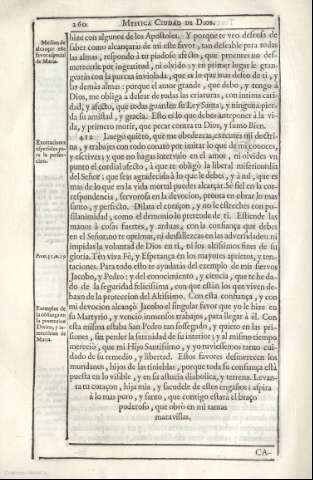 260. MISTICA CIUDAD DE DIOS.
hize con algunos de los Apostoles. Y porque te veo deseosa de
saber como alcançaràs de mi este favor, tan deseable para todas
las almas, respondo à tu piadoso afecto, que procures no des-
merecerle por ingratitud, ni olvido; y en primer lugar le gran-
gearàs con la pureza inviolada, que es lo que mas deseo de ti, y
las demàs almas: porque el amor grande, que debo, y tengo à
Dios, me obliga à desear de todas las criaturas, con intima cari-
dad, y afecto, que todas guarden su Ley Santa, y ninguna pier-
da su amistad, y gracia. Esto es lo que debes anteponer à la vi-
da, y primero morir, que pecar contra tu Dios, y sumo Bien.
412 Luego quiero, que me obedezcas, executes mi doctri-
na, y trabajes con todo conato por imitar lo que de mi conoces,
y escrives; y que no hagas intervalo en el amor, ni olvides un
punto el cordial afecto, à que te obligò la liberal misericordia
del Señor: que seas agradecida à lo que le debes, y à mi, que es
mas de lo que en la vida mortal puedes alcançar. Sè fiel en la cor-
respondencia, fervorosa en la devocion, pronta en obrar lo mas
santo, y perfecto. Dilata el coraçon, y no le estreches con pu-
silanimidad, como el demonio lo pretende de ti. Estiende las
manos à cosas fuertes, y arduas, con la confiança que debes
en el Señor: no te oprimas, ni desfallezcas en las adversidades: ni
impidas la voluntad de Dios en ti, ni los altisimos fines de su
gloria. Ten viva Fè, y Esperança en los mayores aprietos, y ten-
taciones. Para todo esto te ayudaràs del exemplo de mis siervos
Jacobo, y Pedro; y del conocimiento, y ciencia, que te he da-
do de la seguridad felicisima, con que estàn los que viven de-
baxo de la proteccion del Altisimo. Con esta confiança, y con
mi devocion alcançò Jacobo el singular favor que yo le hize en
su Martyrio, y venciò inmensos trabajos, para llegar à èl. Con
esta misma estaba San Pedro tan sosegado, y quieto en las pri-
siones, sin perder la serenidad de su interior; y al mismo tiempo
mereciò, que mi Hijo Santisimo, y yo tuviesemos tanto cui-
dado de su remedio, y libertad. Estos favores desmerecen los
mundanos, hijos de las tinieblas; porque toda su confiança està
puesta en lo visible, y en su astucia diabolica, y terrena. Levan-
ta tu coraçon, hija mia, y sacudele de estos engaños: aspira
à lo mas puro, y santo, que contigo estarà el braço
poderoso, que obrò en mi tantas
maravillas.
CA-
Medios de
alcançar este
favor especial
de Maria.
Exortaciones
repetidas pa-
ra la perfec-
cion.
Prov. 31. v. 19
Exemplos de
la confiança en
la proteccion
Divina, y in-
tercesion de
Maria.